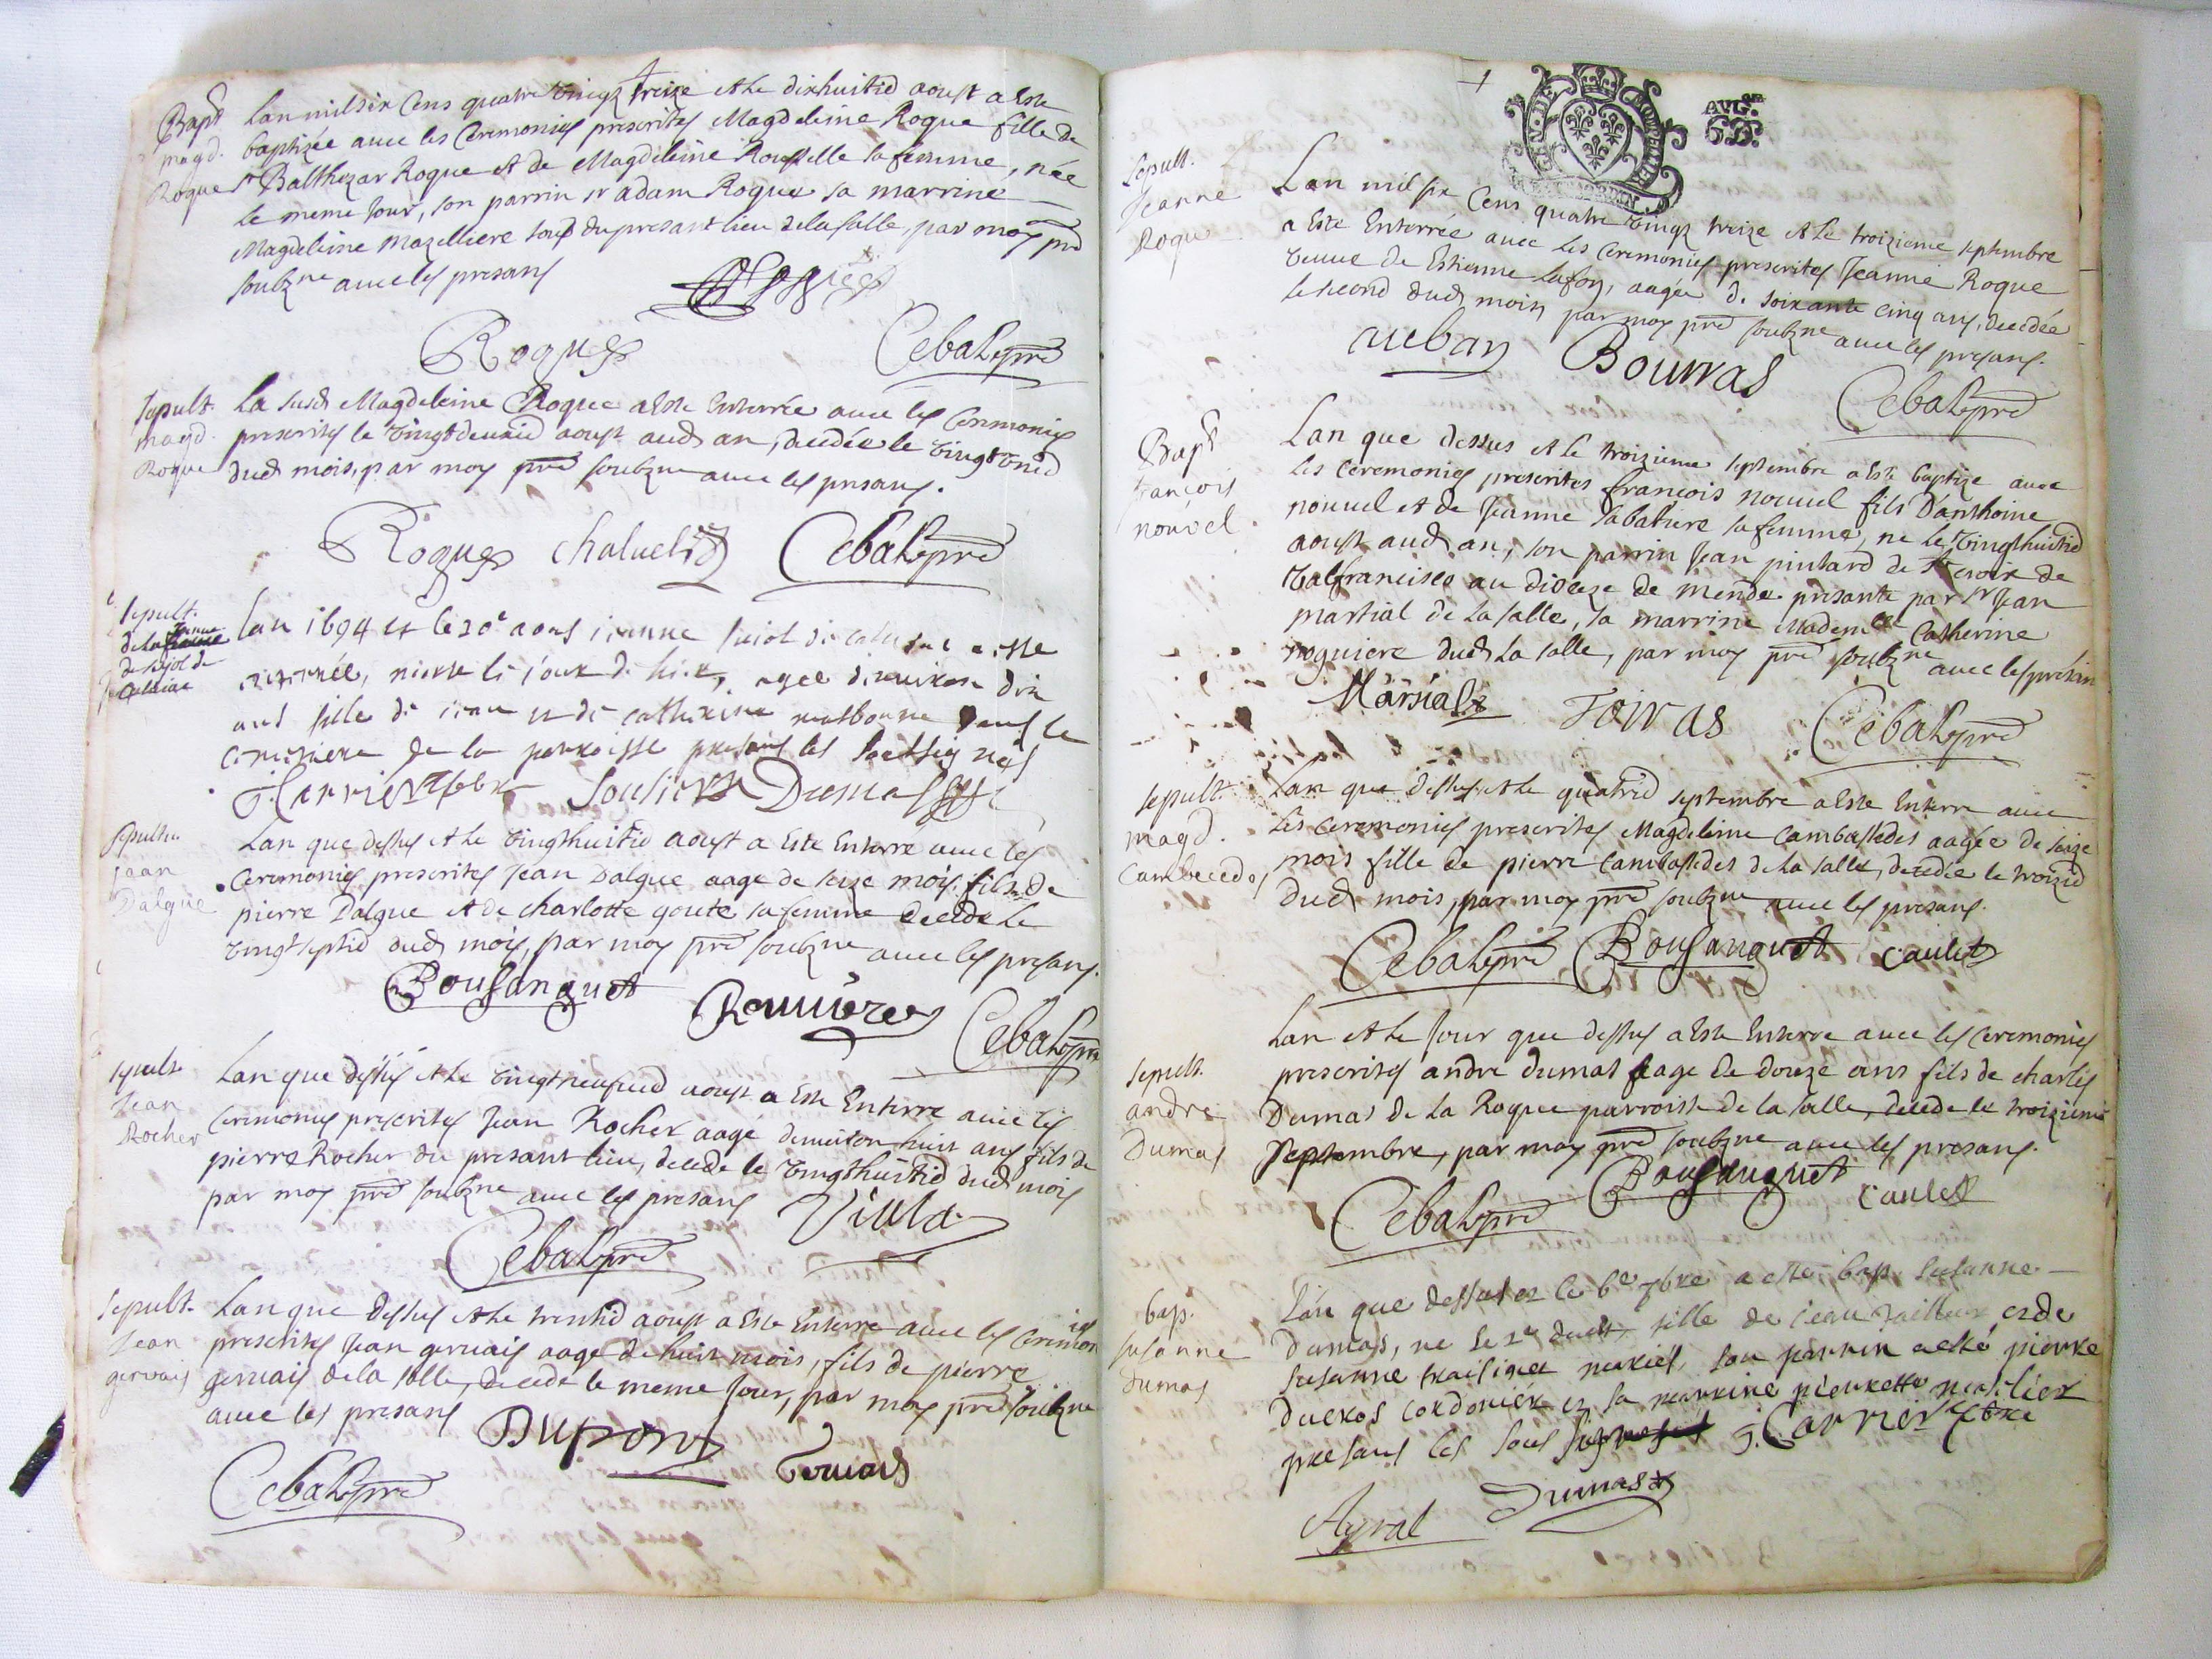 Bapt
magd.
Roque
Lan mil six Cens quatre vingt treize et le dixhuitie aoust a este
baptizée avec les Ceremonies prescrites Magdeleine Roque fille de
sr Balthezar Roque et de Magdeleine Rouselle sa femme, née
le meme jour, son parrin sr adam Roque sa marrine
Magdeleine Mazelliere tous du presant lieu de lasalle, par moy pre
soubzne avec les presans
Roques
Cebal pre
sepult.
magd.
Roque
La susd Magdeleine Roque a este Enterrée avec les Ceremonies
prescrites le vingtdeuxie aoust aud an, decedée le vingt unie
dud mois, par moy pre soubzne avec les presans.
Roques Cebal pre
sepult.
de Jeanne
de
lan 1694 et le 20e aous ieanne
enterrée, morte le jour de hier, agee denviron dix
ans fille de iean et de catherine dans le
cimetiere de la parroisse presans les soussignés
J. Carrier Soulier Dumas
sepultu.
jean
Dalgue
Lan que dessus et le vingthuitie aoust a Este Enterré avec les
ceremonies prescrites Jean Dalgue aage de seze mois, fils de
pierre Dalgue et de charlotte goute sa femme decede le
vingt septie dud mois, par moy pre soubzne avec les presans.
Bousanquet
Cebal pre
sepult
Jean
Rocher
Lan que dessus et le vingtneufvie aoust a Este Enterre avec les
ceremonies prescrites Jean Rocher aagé denviron huit ans fils de
pierre Rocher du presant lieu, decede le vingthuitie dud mois
par moy pre soubzne avec les presans Viala
Cebal pre
sepult.
Jean
gervais
Lan que dessus et le trentie aoust a Este Enterre avec les Ceremonies
prescrites Jean gervais aage de huit mois, fils de pierre
gervais de la salle, decede le meme jour, par moy pre soubzne
avec les presans Dupont
Cebal pre
sepult.
Jeanne
Roque
Lan mil six Cens quatre vingt treize et le troizieme septembre
a Este Enterrée avec les ceremonies prescrites Jeanne Roque
veuve de Estienne lafon, aagée de soixante cinq ans, decedée
le second dud mois, par moy pre soubzne avec les presans.
auban Bourras
Cebal pre
Bapt
françois
nouvel
Lan que dessus et le troizieme septembre a este baptize avec
les ceremonies prescrites françois nouvel fils D'anthoine
nouvel et de Jeanne Sabatiere sa femme, ne le vingthuitie
aoust aud an, son parrin Jean pintard de ste croix de
valfrancisco au diocese de mende presanté par sr Jean
martial de La salle, sa marrine Mademelle Catherine
noguiere dud La salle, par moy pre soubzne avec les presans
Marsial Toiras Cebal pre
sepult.
magd.
Lan que dessus et le quatrie septembre a este Enterre avec
les ceremonies prescrites Magdeleine Cambassedes aagée de seize
mois fille de pierre Cambassedes de la salle, decedée le troizie
dud mois, par moy pre soubzne avec les presans.
Cebal pre Bousanquet Caulet
sepult.
andre
Dumas
Lan et le jour que dessus a este Enterre avec les ceremonies
prescrites andre dumas aage de douze ans fils de charles
Dumas de La Roque parroisse de la salle, decede le troizieme
septembre, par moy pre soubzne avec les presans.
Cebal pre Bousanquet Caulet
bap.
susanne
dumas
Lan que dessus et le 6e 7bre a esté bap. Susanne
dumas, ne le 2e dudt, fille de iean tailleur et de
susanne mariés, son parrin a esté pierre
cordonier et sa marrine pierrette
presans les sous J. Carrier
Ayral Dumas